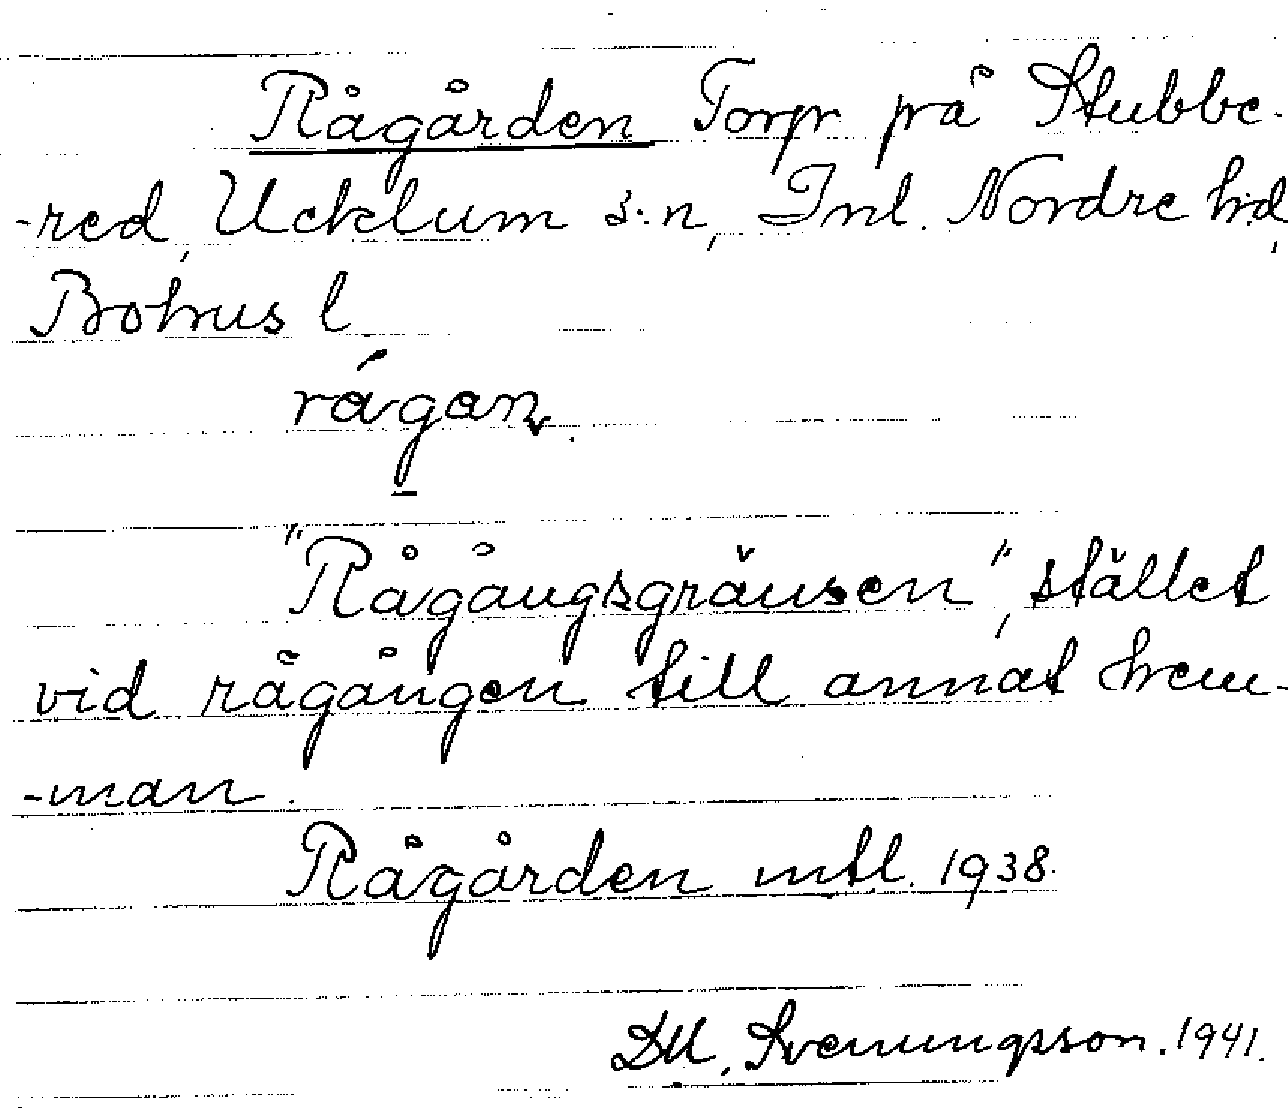 Rågården Torp på Stubbe-
-red, Ucklum s:n, Inl. Nordre hd,
Bohus l
rágan.
"Rågångsgränsen", stället
vid rågången till annat hem-
-man.
Rågården mtl. 1938.
DM. Svenungsson. 1941.